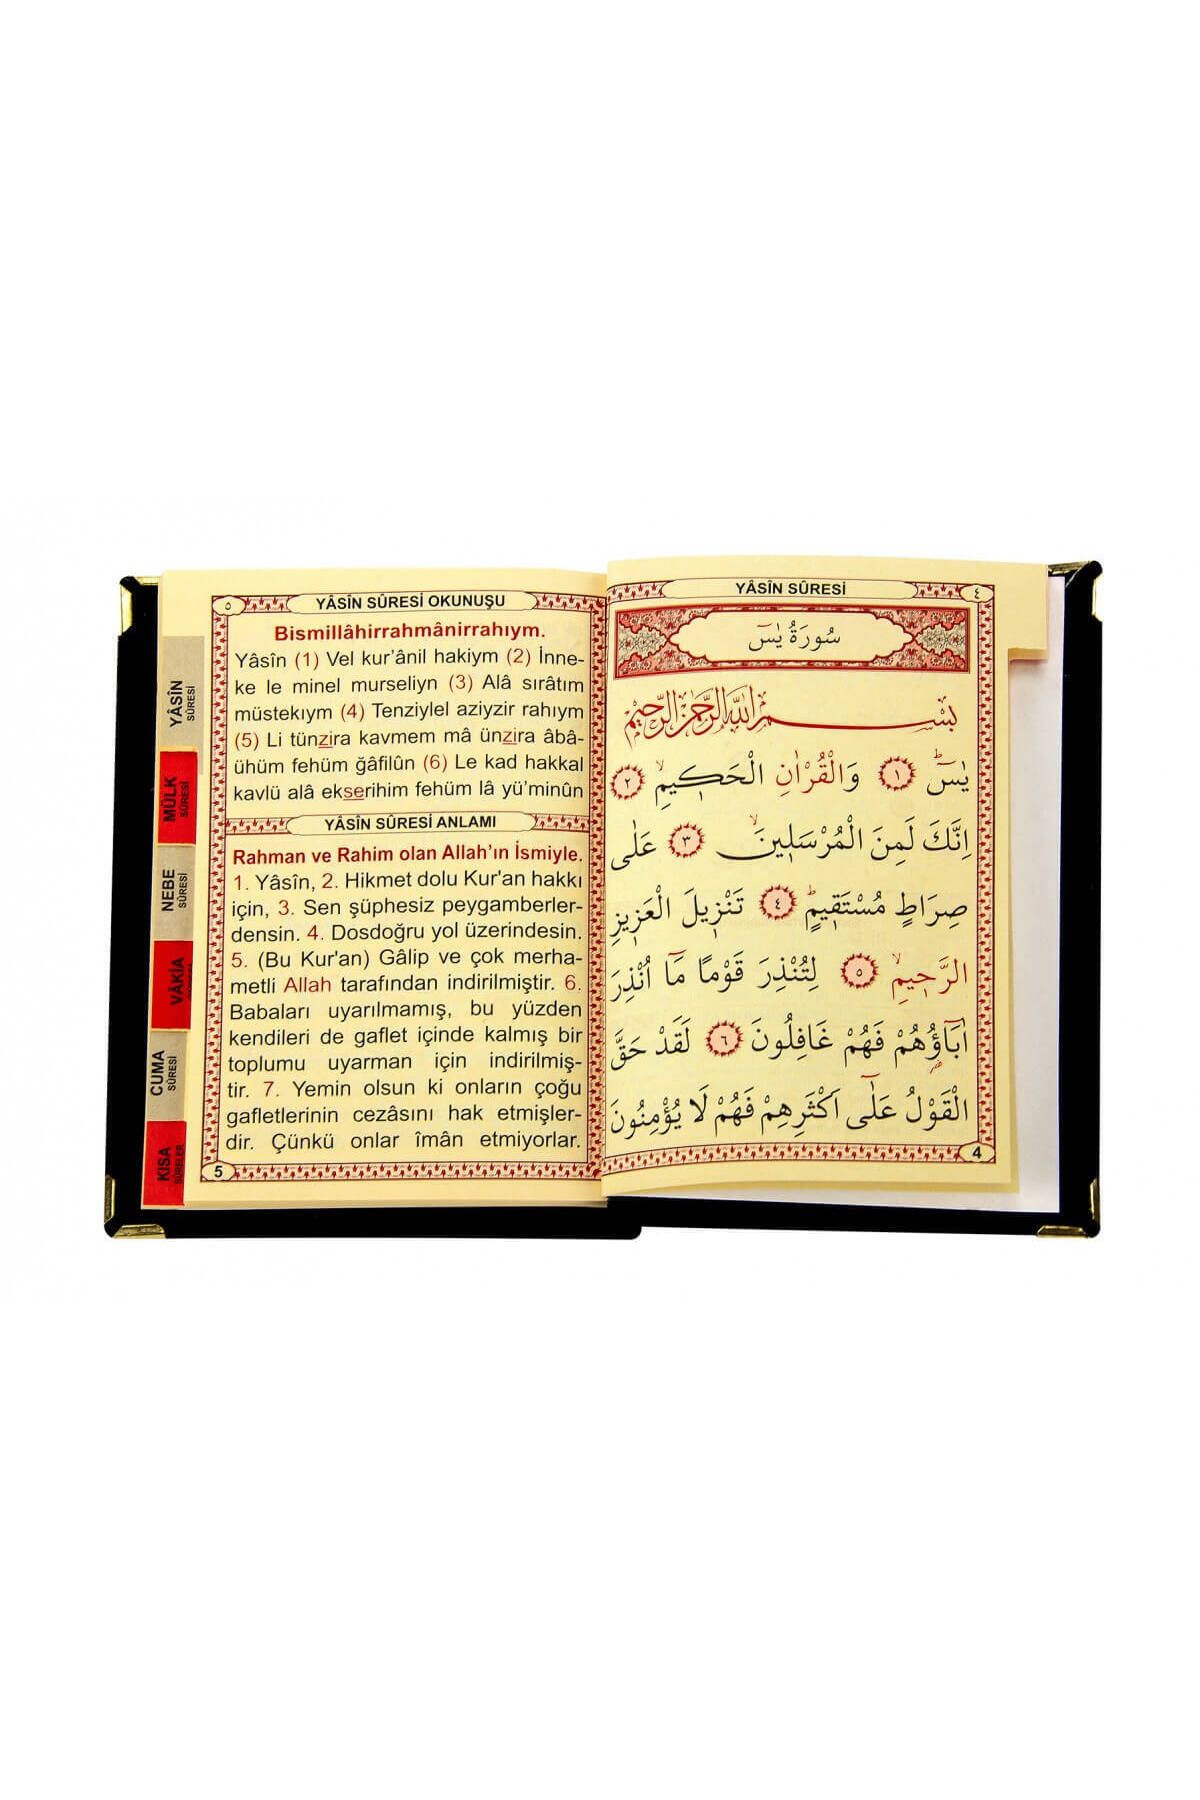 YÂSÎN SÛRESİ
٤
سُورَةُ يٰسٓ
بِسْمِ اللّٰهِ الرَّحْمٰنِ الرَّحٖيمِ
يٰسٓۜ ﴿١﴾ وَالْقُرْاٰنِ الْحَكٖيمِۙ ﴿٢﴾
اِنَّكَ لَمِنَ الْمُرْسَلٖينَۙ ﴿٣﴾ عَلٰى
صِرَاطٍ مُسْتَقٖيمٍۜ ﴿٤﴾ تَنْزٖيلَ الْعَزٖيزِ
الرَّحٖيمِۙ ﴿٥﴾ لِتُنْذِرَ قَوْمًا مَٓا اُنْذِرَ
اٰبَٓاؤُ۬هُمْ فَهُمْ غَافِلُونَ ﴿٦﴾ لَقَدْ حَقَّ
الْقَوْلُ عَلٰٓى اَكْثَرِهِمْ فَهُمْ لَا يُؤْمِنُونَ
4
٥
YÂSÎN SÛRESİ OKUNUŞU
Bismillâhirrahmânirrahıym.
Yâsîn (1) Vel kur’ânil hakiym (2) İnne-
ke le minel murseliyn (3) Alâ sırâtım
müstekıym (4) Tenziylel aziyzir rahıym
(5) Li tünzira kavmem mâ ünzira âbâ-
ühüm fehüm ğâfilûn (6) Le kad hakkal
kavlü alâ ekserihim fehüm lâ yü’minûn
YÂSÎN SÛRESİ ANLAMI
Rahman ve Rahim olan Allah’ın İsmiyle.
1. Yâsîn, 2. Hikmet dolu Kur'an hakkı
için, 3. Sen şüphesiz peygamberler-
densin. 4. Dosdoğru yol üzerindesin.
5. (Bu Kur'an) Gâlip ve çok merha-
metli Allah tarafından indirilmiştir. 6.
Babaları uyarılmamış, bu yüzden
kendileri de gaflet içinde kalmış bir
toplumu uyarman için indirilmiş-
tir. 7. Yemin olsun ki onların çoğu
gafletlerinin cezâsını hak etmişler-
dir. Çünkü onlar îmân etmiyorlar.
5
YÂSÎN
SÛRESİ
MÜLK
SÛRESİ
NEBE
SÛRESİ
VÂKİA
CUMA
SÛRESİ
KISA
SÛRELER